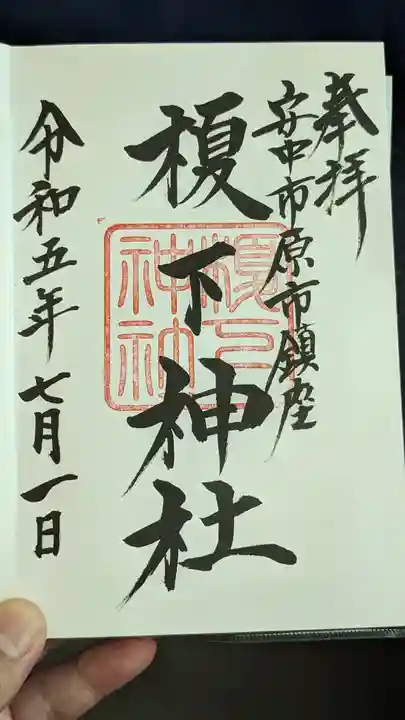 奉拝
安中市原市鎮座
榎下神社
榎下神社
令和五年七月一日